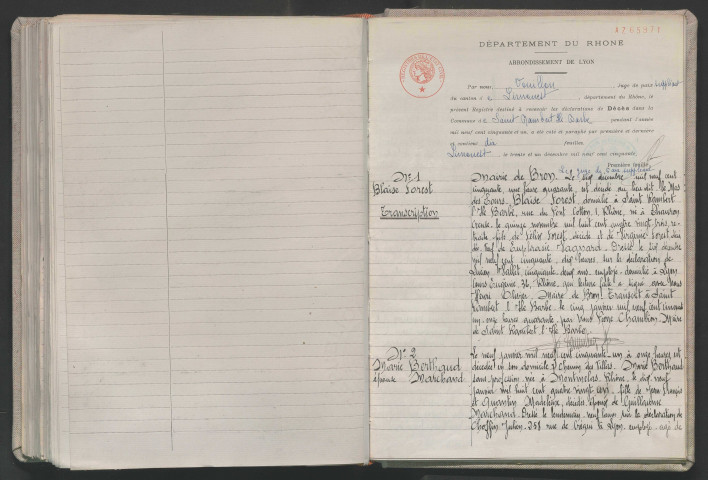 1265971
DÉPARTEMENT DU RHÔNE
ARRONDISSEMENT DE LYON
Par nous, Juge de paix suppléant
du canton de Limonest, département du Rhône, le
présent Registre destiné à recevoir les déclarations de Décès dans la
Commune de Saint Rambert l'Ile Barbe pendant l'année
mil neuf cent cinquante et un, a été coté et paraphé par première et dernière
et contient dix feuilles.
Limonest, le trente et un décembre mil neuf cent cinquante
Première feuille,
Le Juge de Paix suppléant
N° 1
Blaise Forest
Transcription
Mairie de Bron. Le dix décembre mil neuf cent
cinquante, une heure quarante, est décédé au lieu dit le Mas
des Tours, Blaise Forest, domicilié à Saint Rambert
l'Ile Barbe, rue du Port Cotton, 1, Rhône, né à
Creuse, le quinze novembre mil huit cent quatre vingt trois, re-
traité, fils de Félix Forest, décédé, et de Virginie Forest, dé-
veuf de Euphrasie Dressé le dix décembre
mil neuf cent cinquante, dix heures, sur la déclaration de
cinquante deux ans, employé, domicilié à Lyon,
cours Eugénie, 36, Rhône, qui lecture faite a signé avec Nous
Maire de Bron. Transcrit à Saint
Rambert l'Ile Barbe, le cinq janvier mil neuf cent cinquante
un, onze heures quarante, par Nous Pierre Chambon, Maire
de Saint Rambert l'Ile Barbe.
N° 2
Marie Berthaud
épouse Marchand
Le neuf janvier mil neuf cent cinquante un à onze heures est
décédée en son domicile chemin des Villas, Marie Berthaud
sans profession née à Montmelas, Rhône, le dix neuf
janvier mil huit cent quatre vingt trois, fille de Jean François
et Madeleine, décédés, épouse de Guillaume
Marchand. Dressé le lendemain, neuf heures sur la déclaration de
Julien, 258 rue de Créqui à Lyon, employé, âgé de